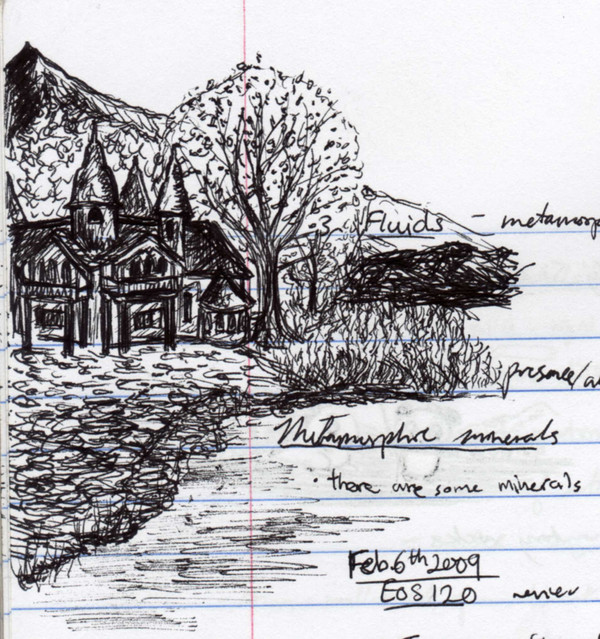 3. Fluids - metamorp
presence/a
Metamorphic minerals
· there are some minerals
Feb. 6th 2009
EOS 120 review